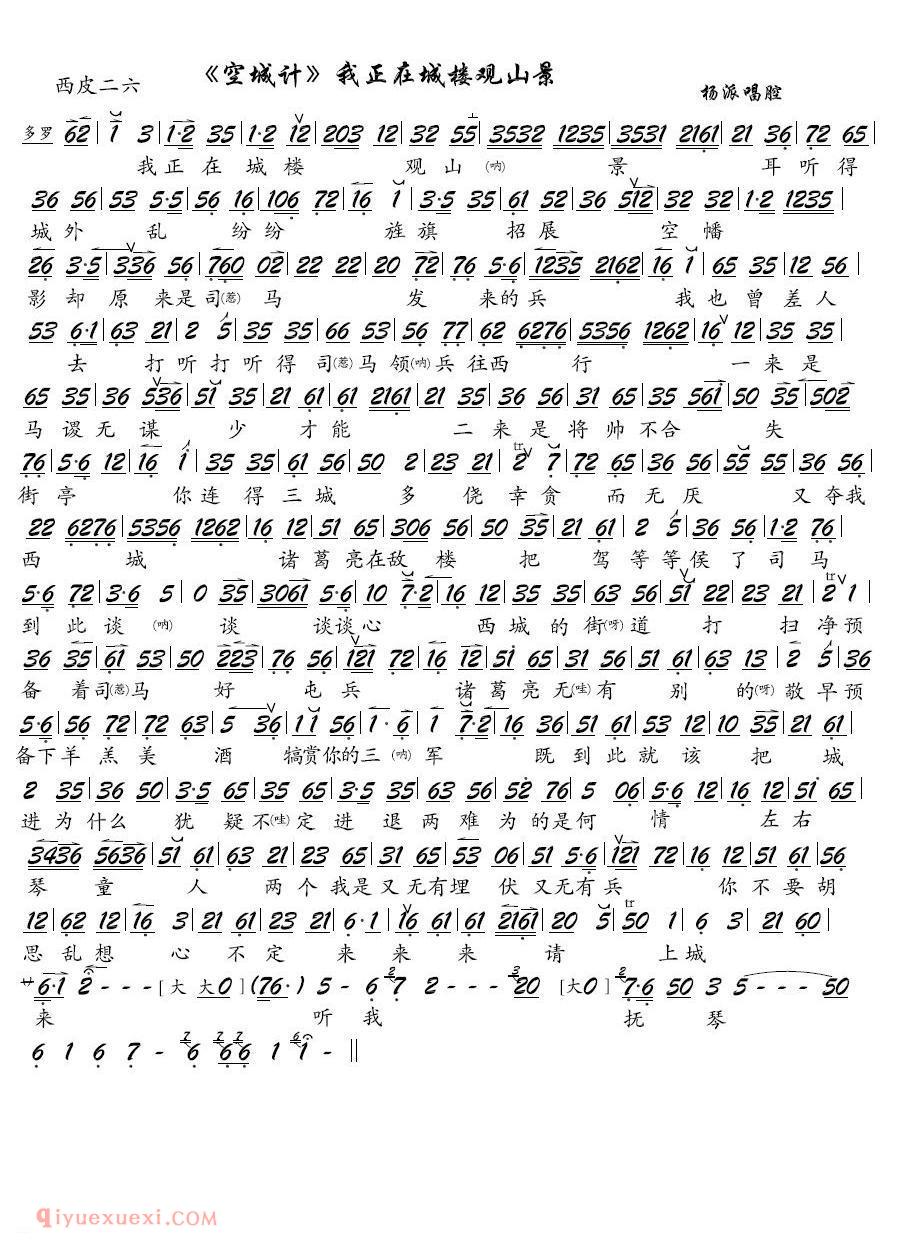 《空城计》我正在城楼观山景
西皮二六
杨派唱腔
多罗 62 | 1 3 | 1·2 35 | 1·2 12 | 203 12 | 32 55 | 3532 1235 | 3531 2161 | 21 36 | 72 65 |
我正在城楼 观山(呐) 景 耳听得
36 56 | 53 5·5 | 56 16 | 106 72 | 16 1 | 3·5 35 | 61 52 | 36 512 | 32 32 | 1·2 1235 |
城外 乱 纷纷 旌旗 招展 空幡
26 3·5 | 336 56 | 760 02 | 22 22 | 20 72 | 76 5·6 | 1235 2162 | 16 1 | 65 35 | 12 56 |
影却原来是司(惹)马 发 来的兵 我也曾差人
53 6·1 | 63 21 | 2 5 | 35 35 | 66 53 | 56 77 | 62 6276 | 5356 1262 | 16 12 | 35 35 |
去 打听打听得司(惹)马领(呐)兵往西 行 一来是
65 35 | 36 536 | 51 35 | 21 61 | 61 2161 | 21 35 | 56 56 | 31 65 | 35 561 | 50 35 | 502
马谡无谋 少 才能 二来是将帅不合 失
76 | 5·6 12 | 16 1 | 35 35 | 61 56 | 50 2 | 23 21 | 2 7 | 72 65 | 36 56 | 55 35 | 36 56 |
街亭 你连得三城 多 侥幸贪 而无厌 又夺我
22 6276 | 5356 1262 | 16 12 | 51 65 | 306 56 | 50 35 | 21 61 | 2 5 | 36 56 | 1·2 76 |
西 城 诸葛亮在敌楼 把 驾等等侯了司马
5·6 72 | 3·6 5 | 0 35 | 3061 5·6 | 10 7·2 | 16 12 | 35 35 | 63 56 | 51 22 | 23 21 | 2 1 |
到此谈(呐) 谈 谈谈心 西城的街(呀)道 打 扫净预
36 35 | 61 53 | 50 223 | 76 56 | 121 72 | 16 12 | 51 65 | 31 56 | 51 61 | 63 13 | 2 5 | 36
备着司(惹)马 好 屯兵 诸葛亮无(哇)有 别 的(呀)敬早预
5·6 | 56 72 | 72 63 | 5 36 | 11 56 | 1·6 | 1 7·2 | 16 36 | 51 61 | 53 12 | 10 35 | 21 61 |
备下羊羔美 酒 犒赏你的三(呐)军 既到此就该 把 城
2 35 | 36 50 | 3·5 65 | 35 56 | 3·5 35 | 63 56 | 52 76 | 5 06 | 5·6 12 | 16 12 | 51 65 |
进为什么 犹疑不(哇)定进 退两难为的是何 情 左右
3436 5636 | 51 61 | 63 21 | 23 65 | 35 65 | 53 06 | 51 5·6 | 121 72 | 16 12 | 51 61 | 56
琴 童 人 两个我是又无有埋 伏又无有兵 你不要胡
12 | 62 12 | 16 3 | 21 61 | 23 21 | 6·1 | 16 61 | 61 2161 | 20 5 | 50 1 | 6 3 | 21 60 |
思乱想 心 不定 来 来 来 请 上城
6·1 2 - - - [大 大0] (76·) 5 - 6 7 2 - - - 20 [大0] 7·6 50 3 5 - - - 50
来 听我 抚 琴
6 1 6 7 - 6 66 1 1 - ‖
qiyuexuexi.com